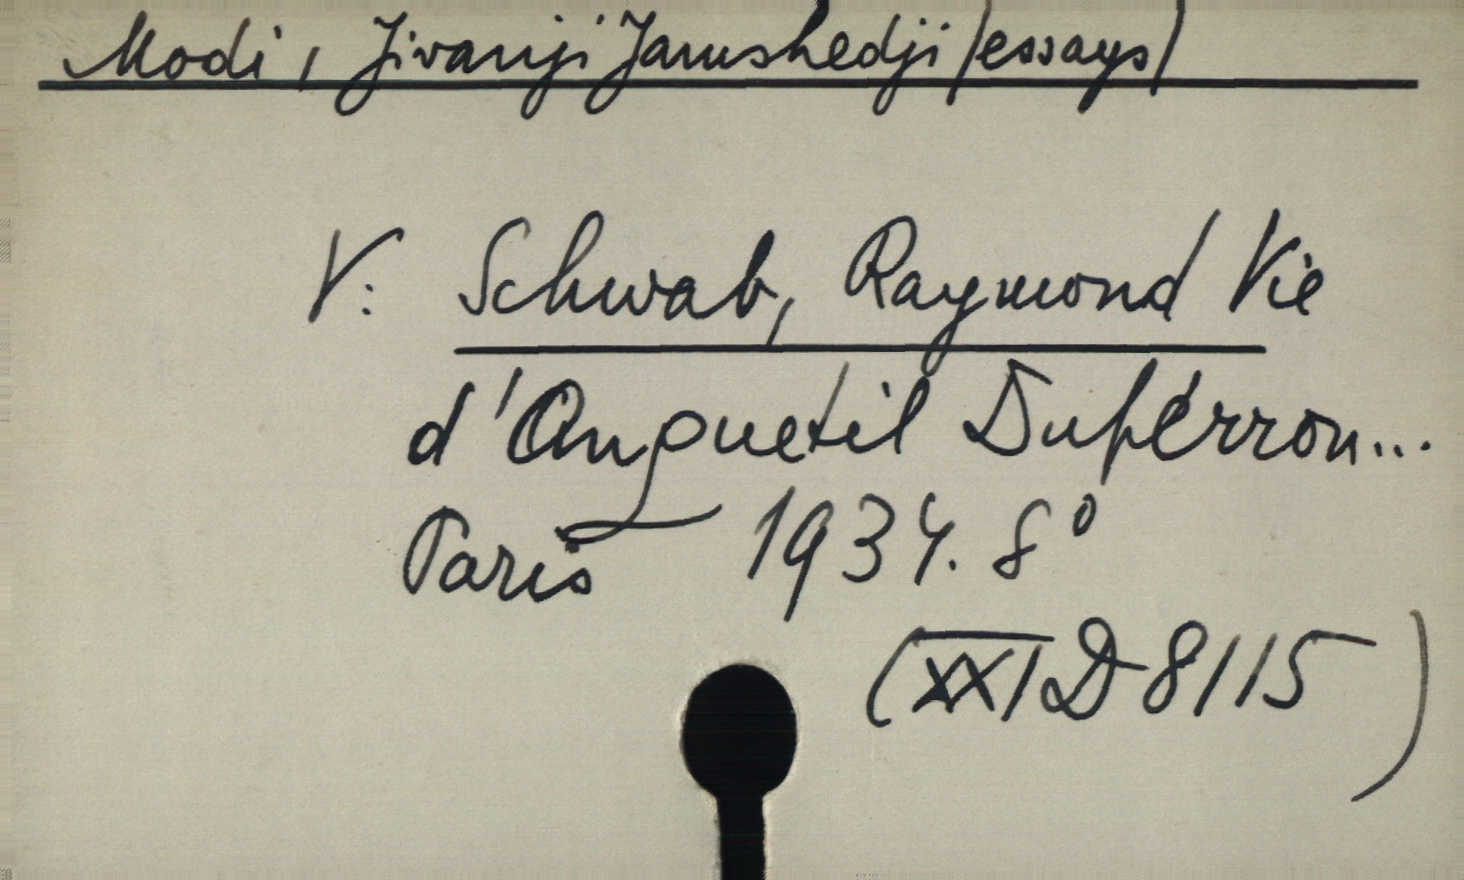 Modi, Jivanji Jamshedji /essays/
V: Schwab, Raymond Vie
d'Anquetil Duperron...
Paris 1934. 8º
(XXI D 8115)